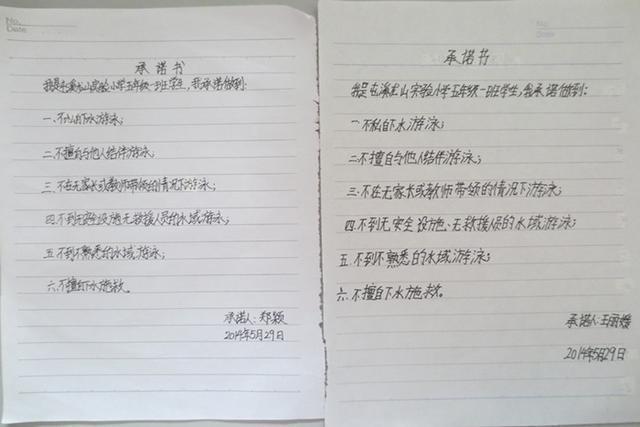 No.
Date
承诺书
我是屯溪龙山实验小学五年级一班学生，我承诺做到：
一.不私自下水游泳；
二.不擅自与他人结伴游泳；
三.不在无家长或教师带领的情况下游泳；
四.不到无安全设施、无救援人员的水域游泳；
五.不到不熟悉的水域游泳；
六.不擅自下水施救。
承诺人：郑颖
2014年5月29日
No.
Date
承诺书
我是屯溪龙山实验小学五年级一班学生，我承诺做到：
一.不私自下水游泳；
二.不擅自与他人结伴游泳；
三.不在无家长或教师带领的情况下游泳；
四.不到无安全设施、无救援人员的水域游泳；
五.不到不熟悉的水域游泳；
六.不擅自下水施救。
承诺人：王雨
2014年5月29日